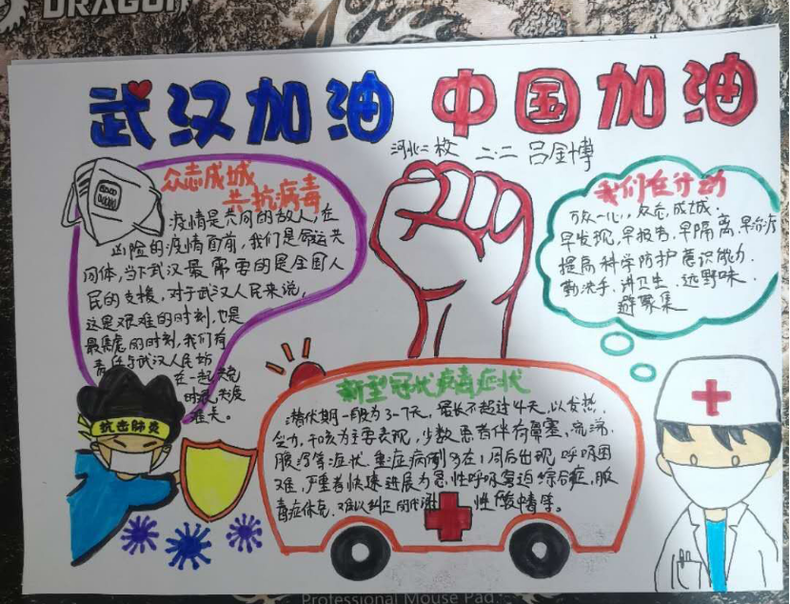 DRAGON
武汉加油 中国加油
河北二校 二.二 吕金博
众志成城
共抗病毒
疫情是共同的敌人,在
凶险的疫情面前,我们是命运共
同体,当下武汉最需要的是全国人
民的支援,对于武汉人民来说,
这是艰难的时刻,也是
最焦虑的时刻,我们有
责任与武汉人民站
在一起共克
时艰共度
难关。
我们在行动
万众一心,众志成城.
早发现,早报告,早隔离,早治疗
提高科学防护意识能力.
勤洗手、讲卫生、远野味、
避聚集
抗击肺炎
新型冠状病毒症状
潜伏期一般为3-7天,最长不超过14天,以发热,
乏力,干咳为主要表现,少数患者伴有鼻塞、流涕、
腹泻等症状.重症病例多在1周后出现呼吸困
难,严重者快速进展为急性呼吸窘迫综合症,脓
毒症休克,难以纠正的代谢性酸中毒等。
GOOD
Professional Mouse Pad